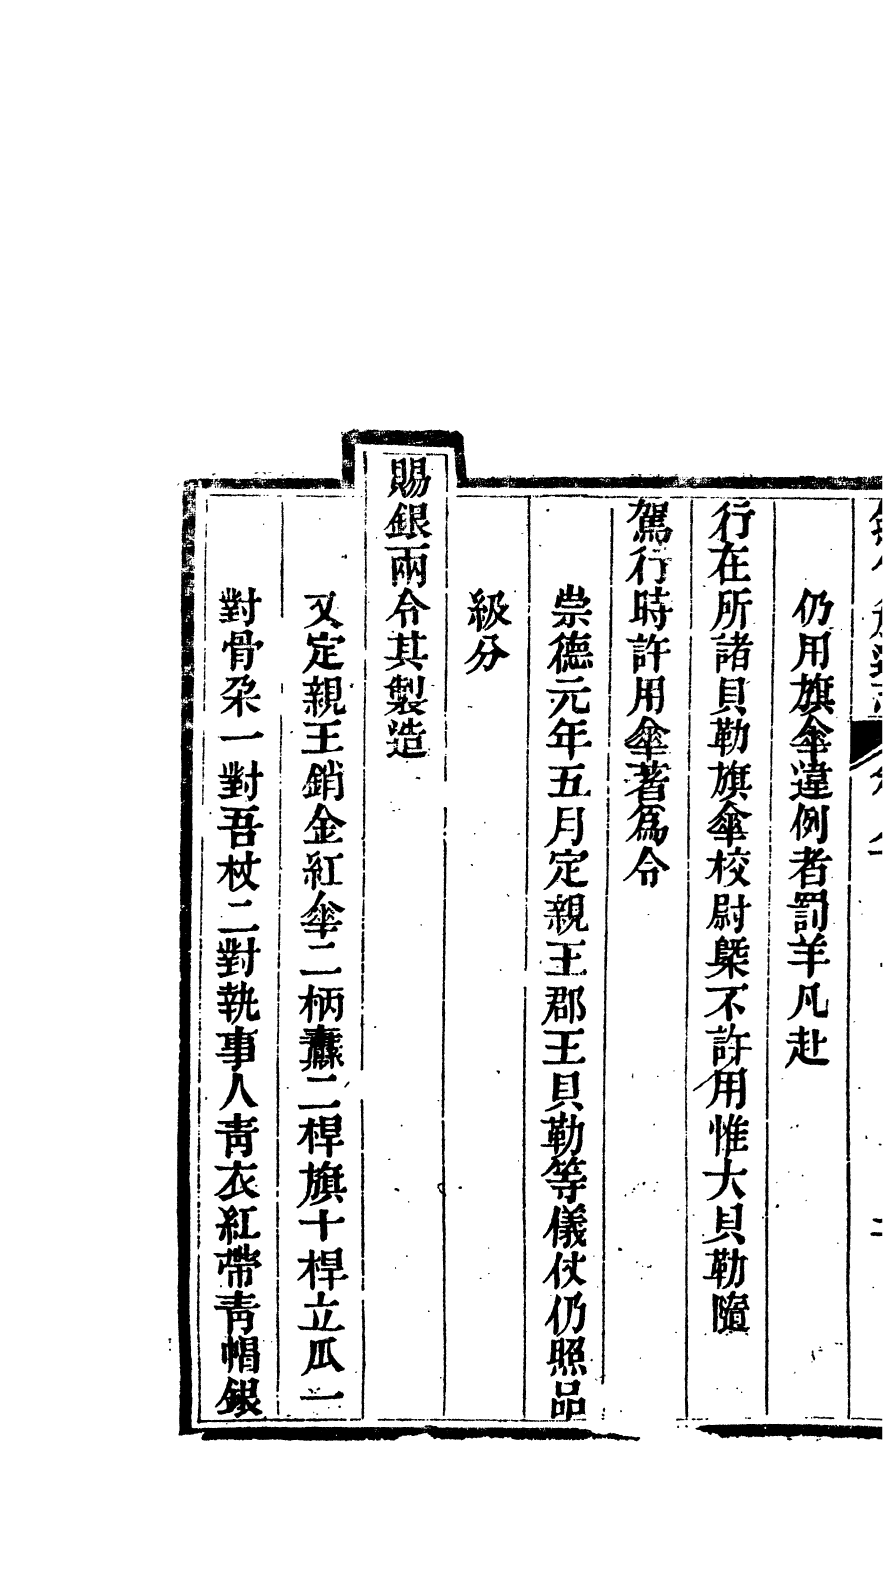 仍用旗傘違例者罰羊凡赴
行在所諸貝勒旗傘校尉槩不許用惟大貝勒隨
駕行時許用傘著爲令
崇德元年五月定親王郡王貝勒等儀仗仍照品
級分
賜銀兩令其製造
又定親王銷金紅傘二柄纛二桿旗十桿立瓜一
對骨朶一對吾杖二對執事人靑衣紅帶靑帽銀